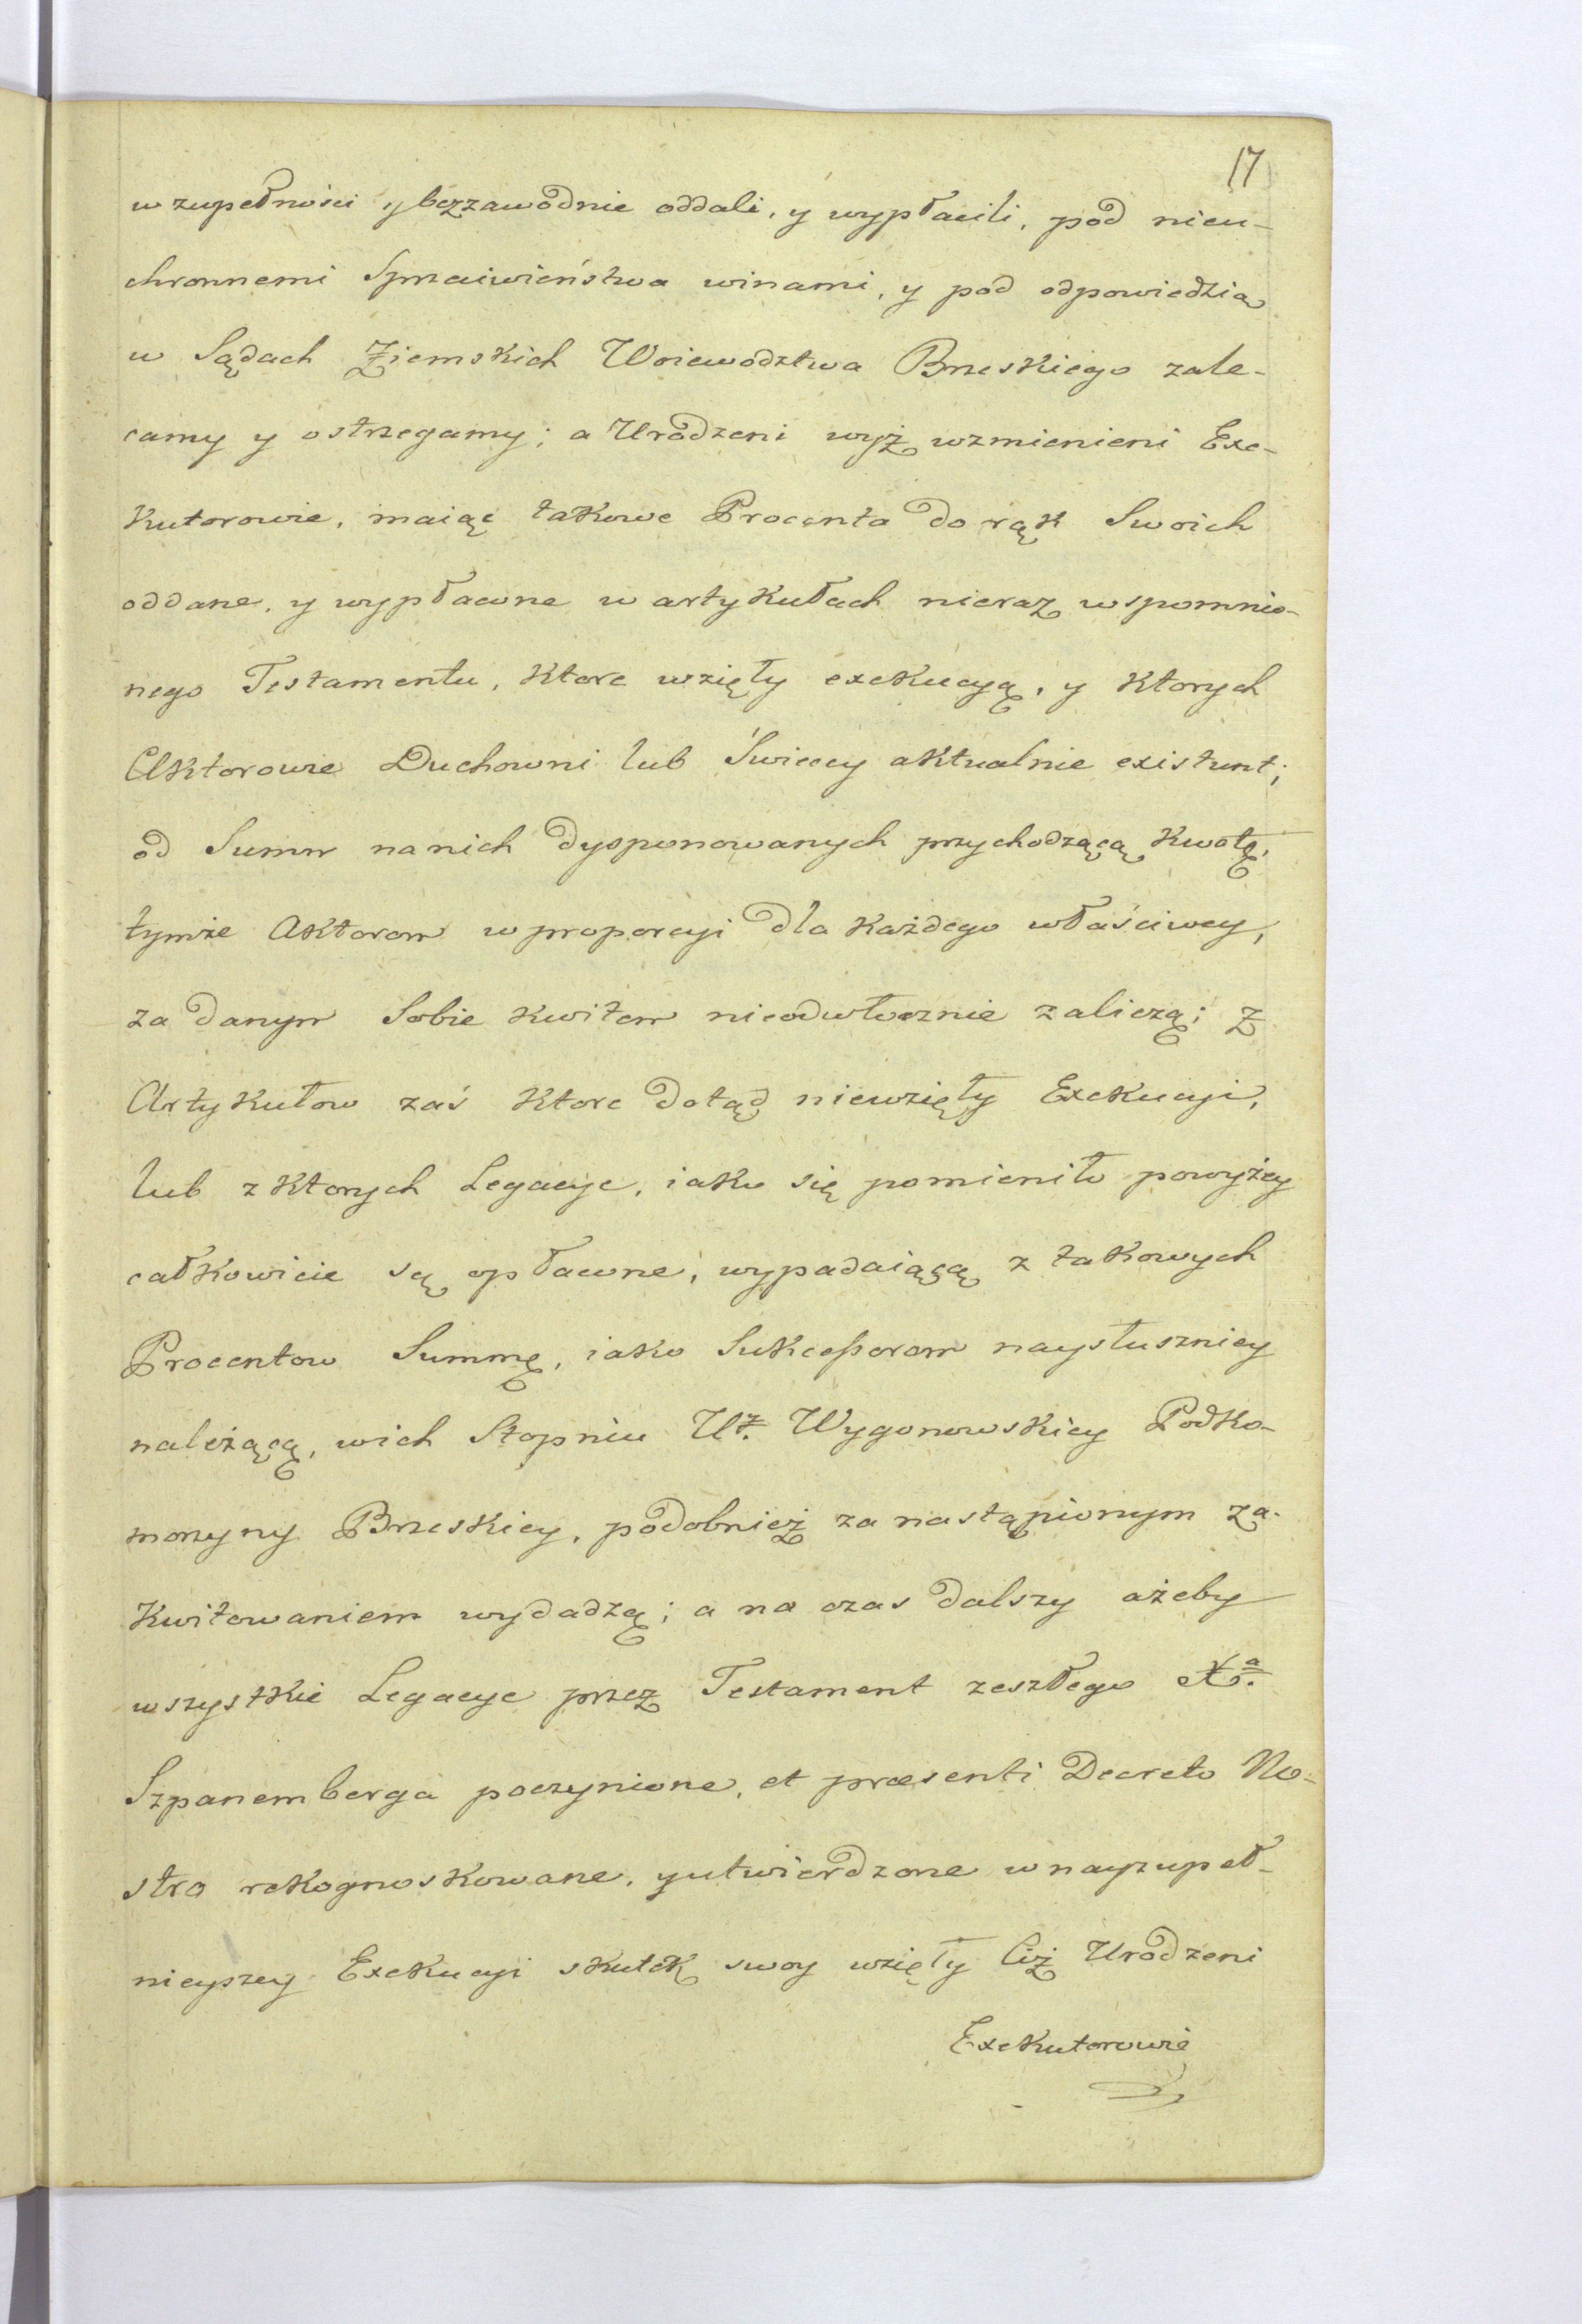 17
w zupełności y bezzawodnie oddali, y wypłacili, pod nieu-
chronnemi Sprzeiwieństwa winami, y pod odpowiedzią
w Sądach Ziemskich Woiewodztwa Brzeskiego zale-
camy y ostrzegamy; a Urodzeni wyż wzmienieni Exe-
kutorowie, maiąc takowe Procenta do rąk Swoich
oddane, y wypłacone w artykułach nieraz wspomnio-
nego Testamentu, ktore wzięły exekucyą, y ktorych
Aktorowie Duchowni lub Świeccy aktualnie existunt;
od Summ na nich dysponowanych przychodzącą kwotę,
tymże Aktorom w proporcyi dla każdego właściwey,
za danym Sobie kwitem nieodwłocznie zaliczą; z
Artykułow zaś ktore dotąd niewzięły Exekucyi,
lub z ktorych Legacye, iako się pomieniło powyżey
całkowicie są opłacone, wypadaiącą z takowych
Procentow Summę, iako Sukcessorom naysłuszniey
należącą, wich Stopniu Uż. Wygonowskiey Podko-
morzyny Brzeskiey, podobnież za nastąpionym za-
kwitowaniem wydadzą; a na czas dalszy ażeby
wszystkie Legacye przez Testament zeszłego Xa.
Szpanemberga poczynione, et præsenti Decreto No-
stro rekognoskowane, y utwierdzone w nayzupeł-
nieyszey Exekucyi skutek swoy wzięły Ciż Urodzeni
Exekutorowie